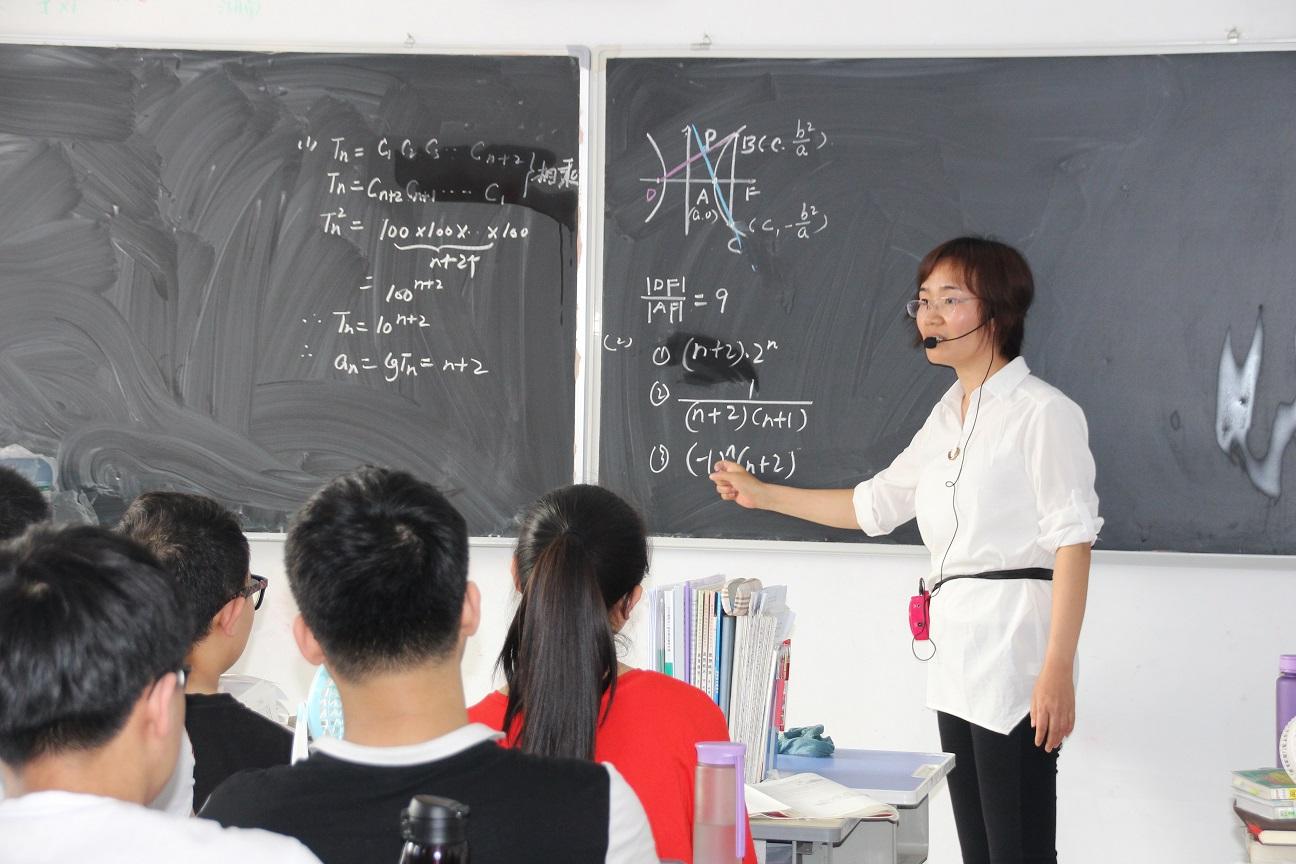 (1) Tn = C1 C2 C3 ... Cn+2 } 相乘
Tn = Cn+2 Cn+1 .... C1
Tn² = 100×100×...×100
n+2个
= 100^n+2
∴ Tn = 10^n+2
∴ an = lgTn = n+2
P
B(c, b²/a)
D
A
F
(a,0)
C
(c, -b²/a)
|DF|/|AF| = 9
(2) ① (n+2)·2ⁿ
② 1/(n+2)(n+1)
③ (-1)ⁿ(n+2)